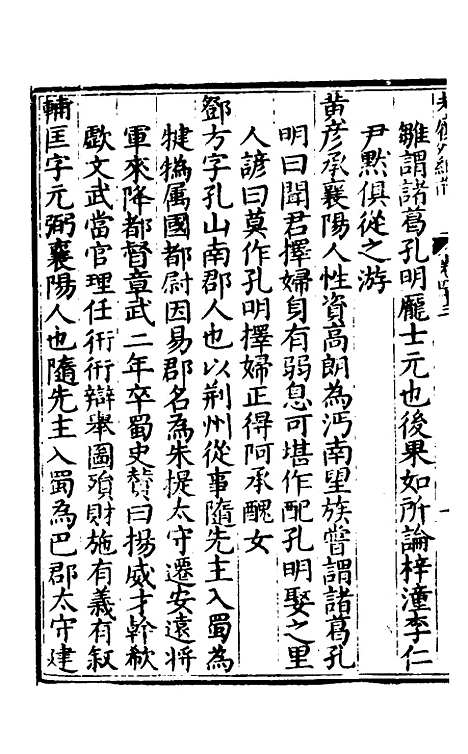 雛謂諸葛孔明龐士元也後果如所論梓潼李仁
尹默俱從之游
黄彦承襄陽人性資高朗為沔南望族嘗謂諸葛孔
明曰聞君擇婦身有弱息可堪作配孔明娶之里
人諺曰莫作孔明擇婦正得阿承醜女
鄧方字孔山南郡人也以荆州從事隨先主入蜀為
犍犻属國都尉因易郡名為朱提太守遷安遠將
軍來降都督章武二年卒蜀史賛曰揚威才幹欷
歔文武當官理任衎衎辯舉圖殖財施有義有叙
輔匡字元弼襄陽人也隨先主入蜀為巴郡太守建